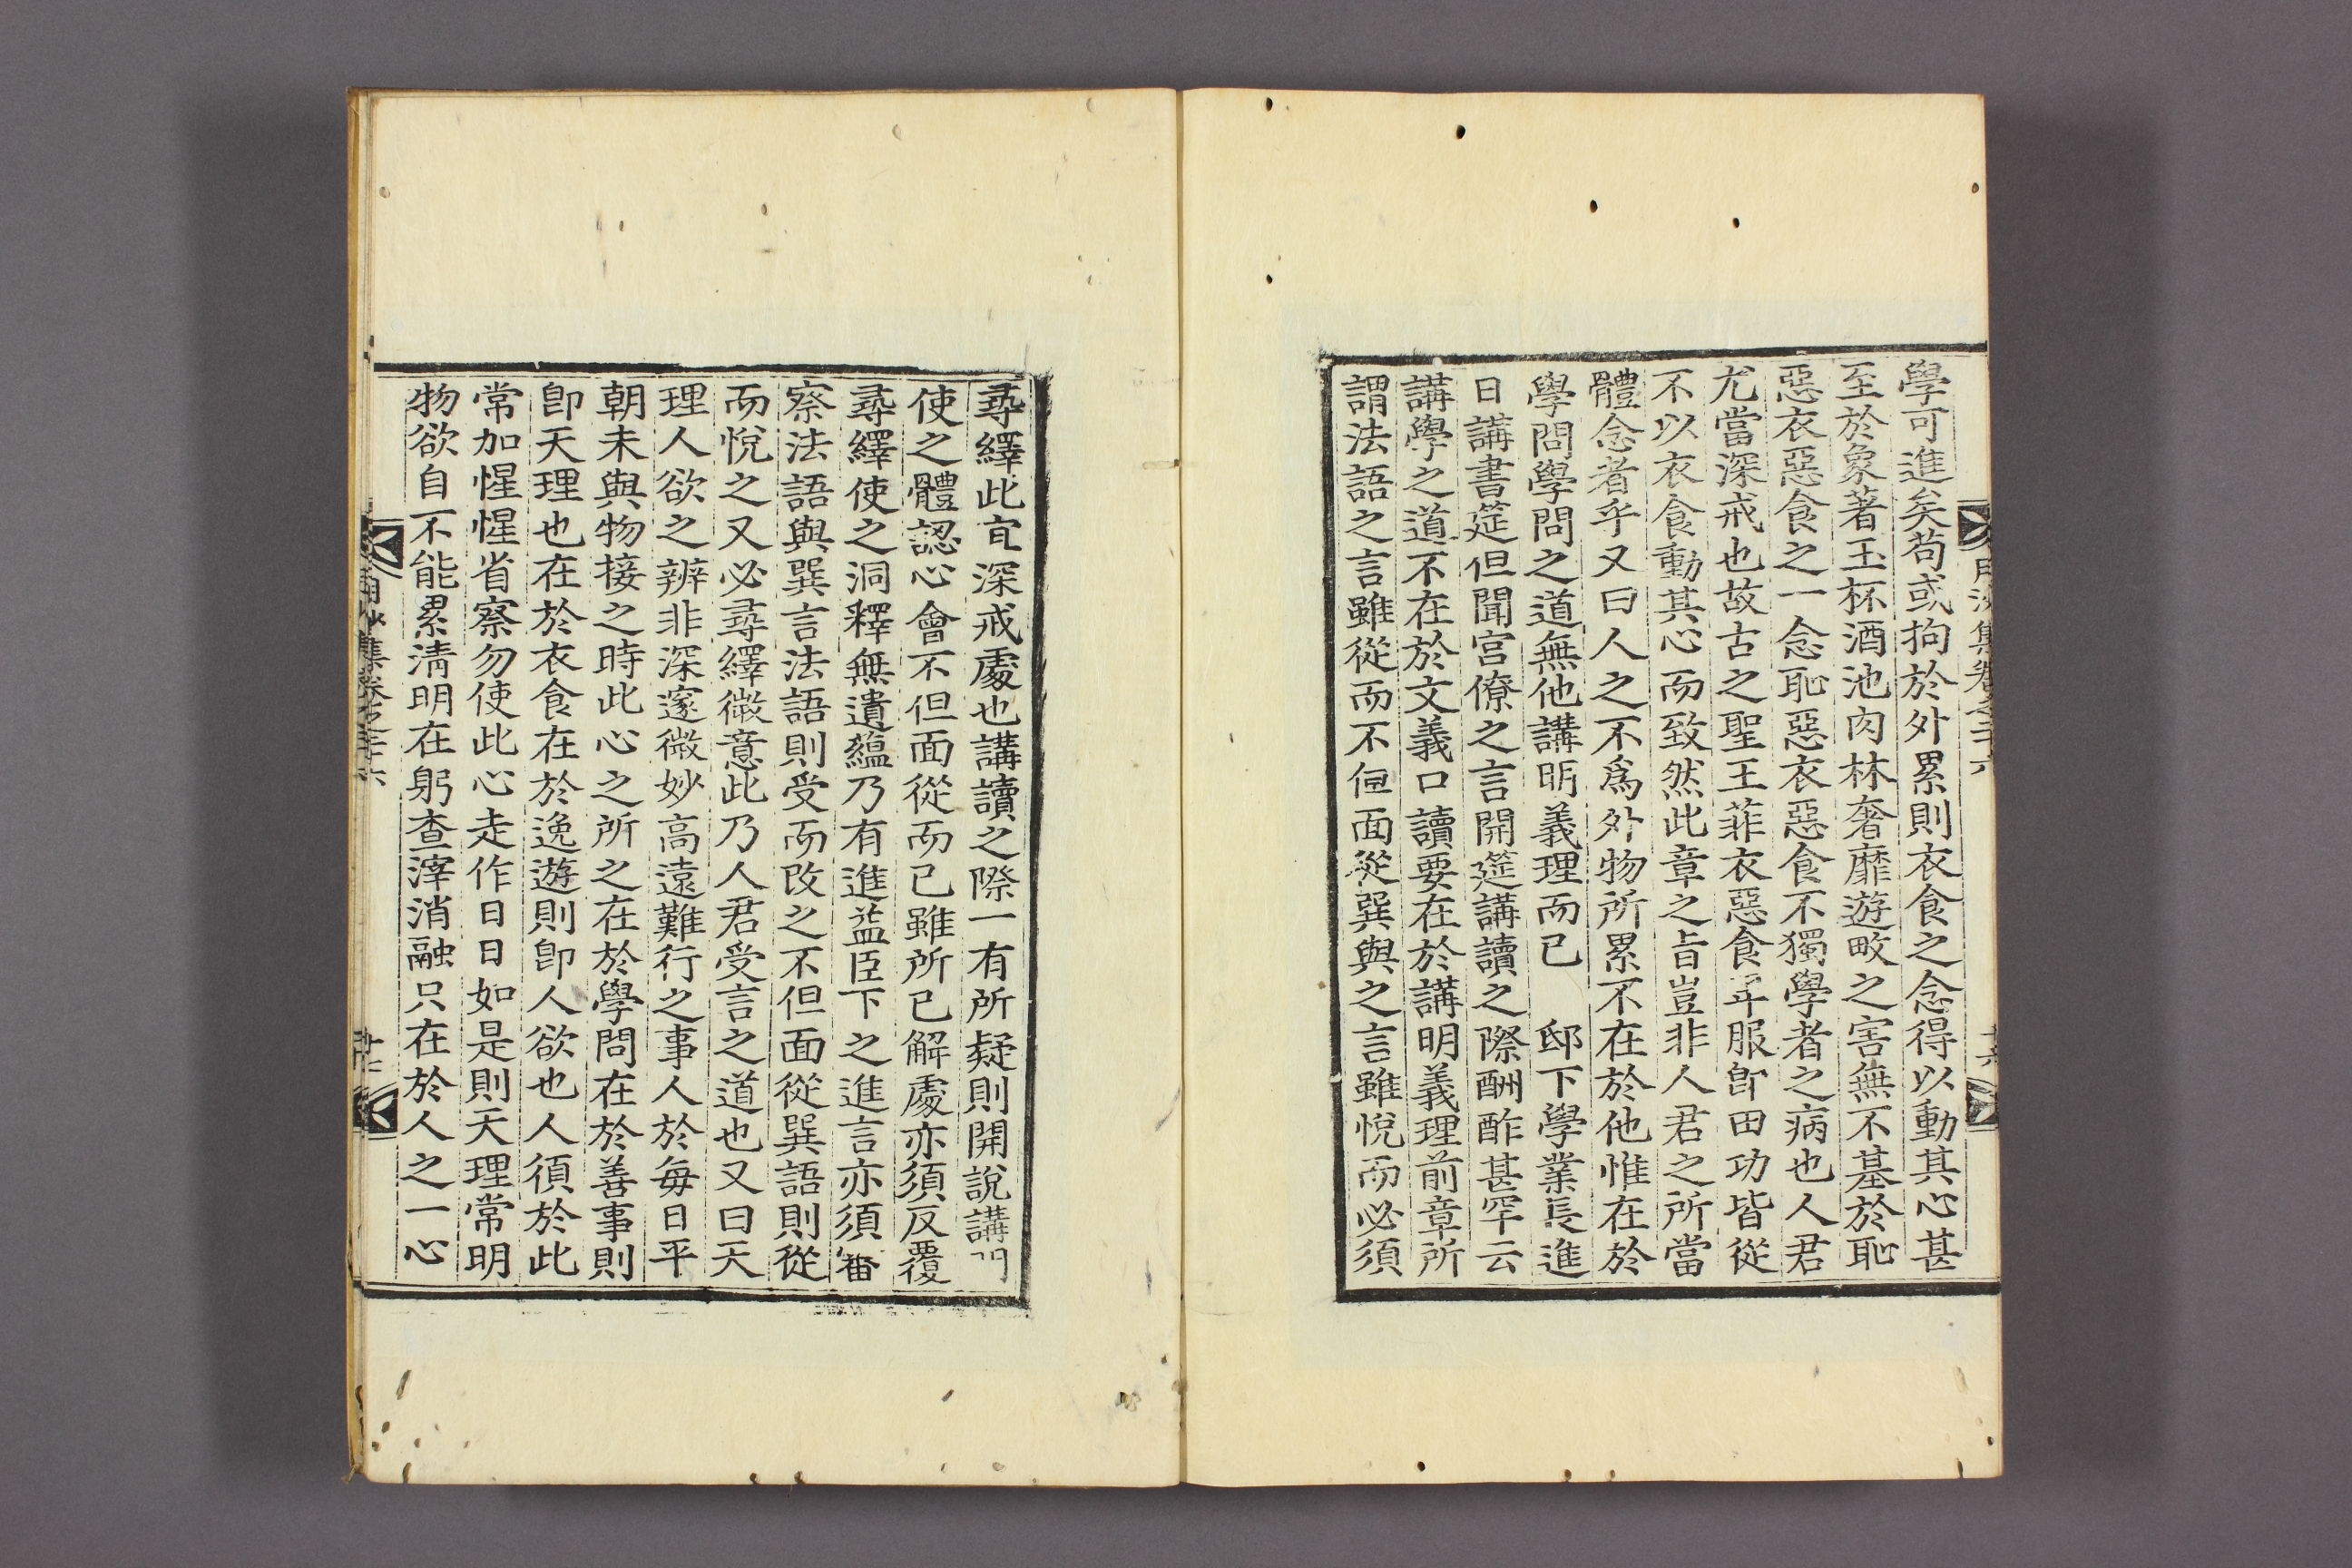 學可進矣苟或拘於外累則衣食之念得以動其心甚
至於象著玉杯酒池肉林奢靡遊畋之害無不基於恥
惡衣惡食之一念恥惡衣惡食不獨學者之病也人君
尤當深戒也故古之聖王菲衣惡食卑服卽田功皆從
不以衣食動其心而致然此章之旨豈非人君之所當
體念者乎又曰人之不爲外物所累不在於他惟在於
學問學問之道無他講明義理而已 邸下學業長進
日講書筵但聞宮僚之言開筵講讀之際酬酢甚罕云
講學之道不在於文義口讀要在於講明義理前章所
謂法語之言雖從而不但面從巽與之言雖悅而必須
尋繹此宜深戒處也講讀之際一有所疑則開說講
使之體認心會不但面從而已雖所已解處亦須反覆
尋繹使之洞釋無遺蘊乃有進益臣下之進言亦須審
察法語與巽言法語則受而改之不但面從巽語則從
而悅之又必尋繹微意此乃人君受言之道也又曰天
理人欲之辨非深邃微妙高遠難行之事人於每日平
朝未與物接之時此心之所之在於學問在於善事則
卽天理也在於衣食在於逸遊則卽人欲也人須於此
常加惺惺省察勿使此心走作日日如是則天理常明
物欲自不能累淸明在躬查滓消融只在於人之一心